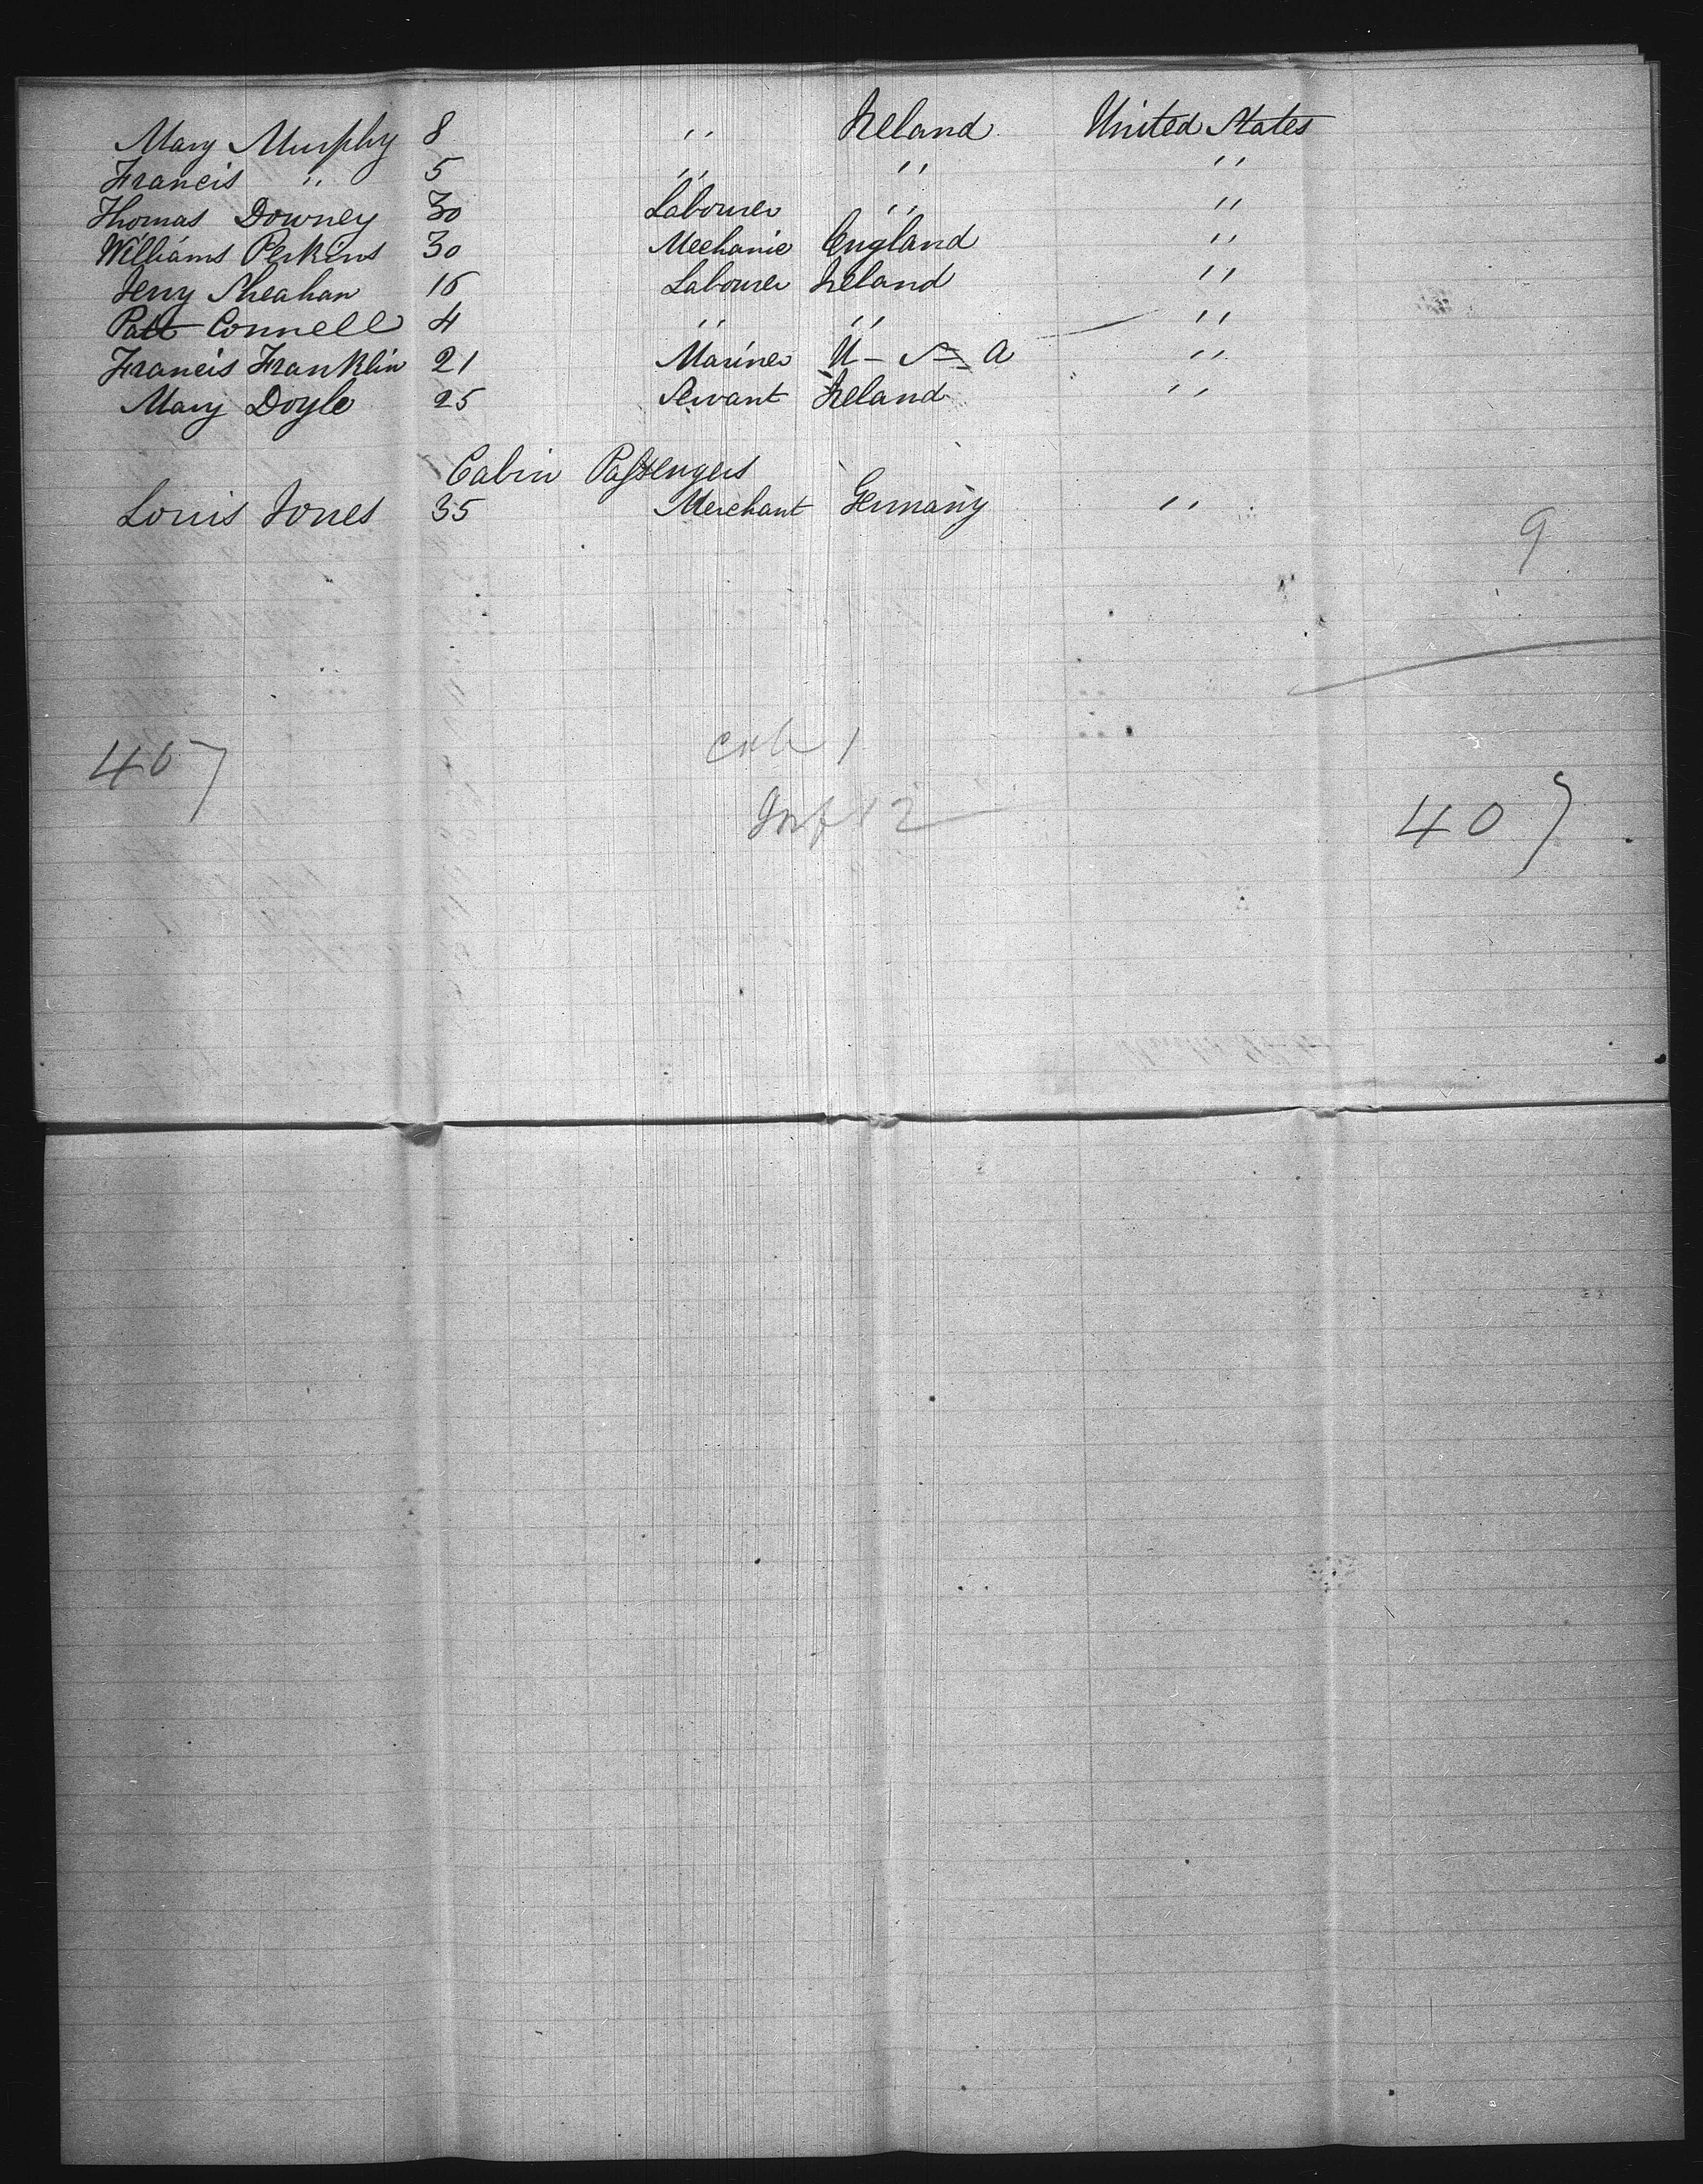 Mary Murphy 8 '' Ireland United States
Francis '' 5 '' '' ''
Thomas Downey 30 Labourer '' ''
Williams Perkins 30 Mechanic England ''
Jerry Sheahan 16 Labourer Ireland ''
Patt Connell 4 '' '' ''
Francis Franklin 21 Mariner U - S - A ''
Mary Doyle 25 Servant Ireland ''
Cabin Passengers
Louis Jones 35 Merchant Germany ''
9
407
cab 1
Inf 12
407